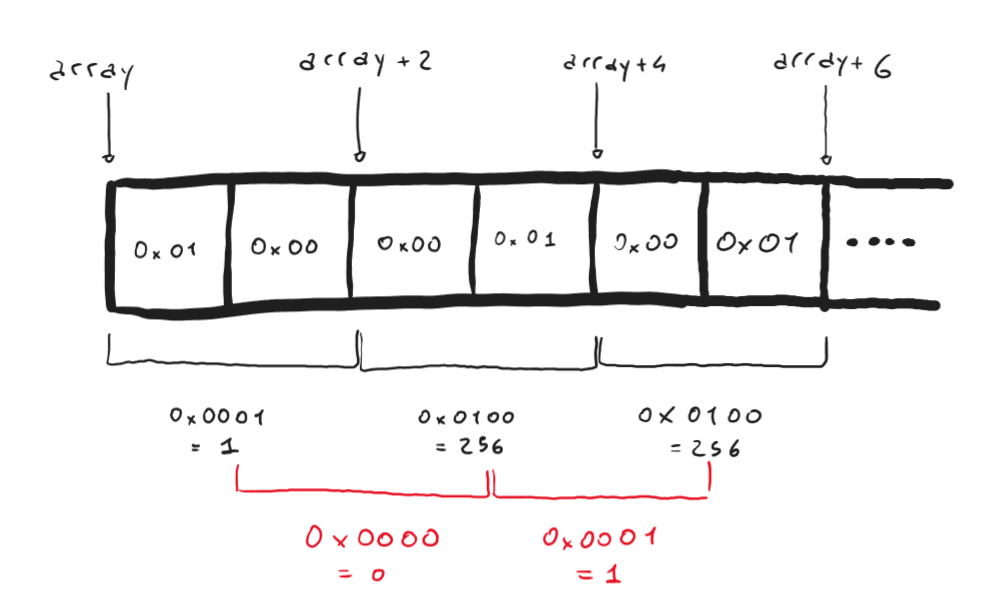 array array + 2 array+4 array+ 6
0x01 0x00 0x00 0x01 0x00 0x01 ....
0x0001 0x0100 0x0100
= 1 = 256 = 256
0x0000 0x0001
= 0 = 1